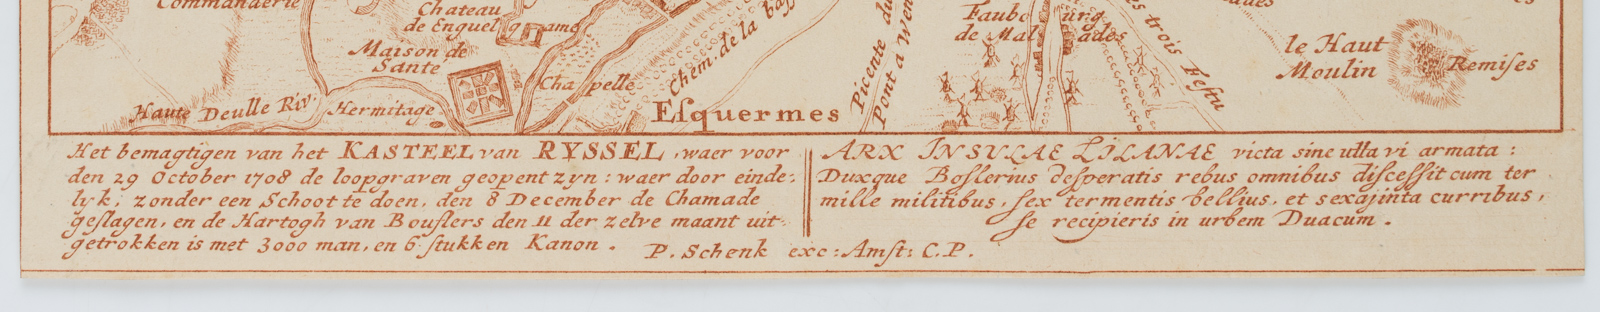 Commanderie
Chateau
de Enguel game
Maison de
Sante
Haute Deulle Riv.
Hermitage
Chappelle
Chem. de la bass
Esquermes
Picente du
Pont a Wen
Faubourg
de Malades
es trois Festu
ades
le Haut
Moulin
Remises
es
Het bemagtigen van het KASTEEL van RYSSEL, waer voor
den 29 October 1708 de loopgraven geopent zyn: waer door einde-
lyk, zonder een Schoot te doen, den 8 December de Chamade
geslagen, en de Hartogh van Bouflers den 11 der zelve maant uit-
getrokken is met 3000 man, en 6 stukken Kanon.
ARX INSULAE LILANAE victa sine ulla vi armata:
Duxque Boflerius desperatis rebus omnibus discessit cum ter
mille militibus, sex termentis bellius, et sexajinta curribus,
se recipieris in urbem Duacum.
P. Schenk exc: Amst: C.P.